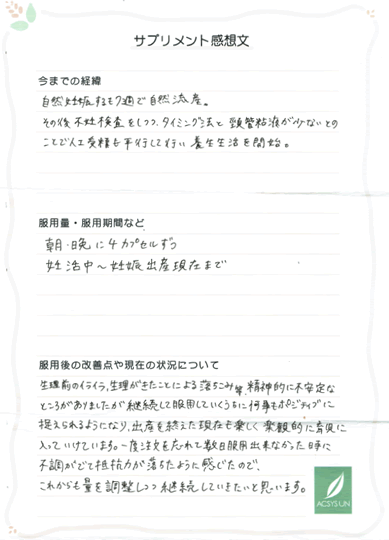 サプリメント感想文
今までの経緯
自然妊娠するも7週で自然流産。
その後不妊検査をしつつ、タイミング法と頸管粘液が少ないとの
ことで人工受精も平行して行い養生生活を開始。
服用量・服用期間など
朝・晩に4カプセルずつ
妊活中～妊娠出産現在まで
服用後の改善点や現在の状況について
生理前のイライラ、生理がきたことによる落ちこみ等、精神的に不安定な
ところがありましたが継続して服用していくうちに何事もポジティブに
捉えられるようになり、出産を終えた現在も楽しく楽観的に育児に
入っていけています。一度注文を忘れて数日服用出来なかった時に
不調がでて抵抗力が落ちたように感じたので、
これからも量を調整しつつ継続していきたいと思います。
ACSYS UN